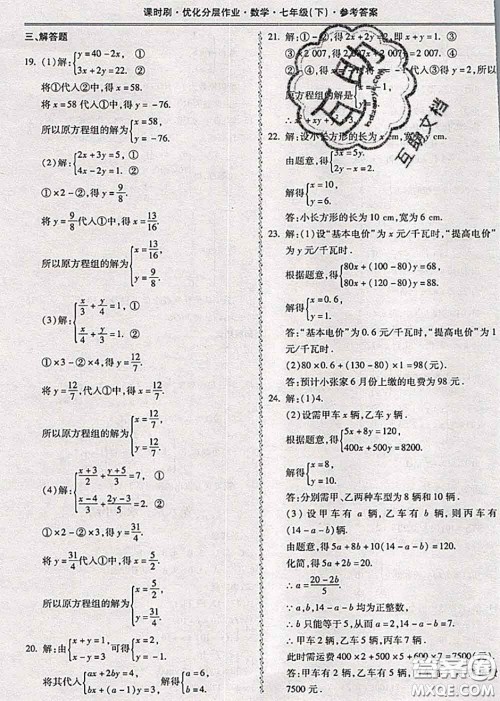 课时刷·优化分层作业·数学·七年级(下)·参考答案
三、解答题
19. (1)解:{y=40-2x, ①
3x+2y=22. ②
将①代入②中,得 x=58.
将 x=58 代入①中,得 y=-76.
所以原方程组的解为{x=58,
y=-76.
(2)解:{2x+3y=5, ①
4x-2y=1. ②
①×2-②,得 y=9/8.
将 y=9/8 代入①中,得 x=13/16.
所以原方程组的解为{x=13/16,
y=9/8.
(3)解:{x/3+y/4=1, ①
①×3-②×4,得 y=12/7.
将 y=12/7 代入①中,得 x=12/7.
所以原方程组的解为{x=12/7,
y=12/7.
(4)解:{(x+3)/2+(y+5)/3=7, ①
(x-4)/3+(2y-3)/5=2. ②
得 y=31/4.
将 y=31/4 代入①中,得 x=5/2.
所以原方程组的解为{x=5/2,
y=31/4.
20. 解:由{x+y=1,
x-y=3,可得
将其代入{ax+2by=4,
bx+(a-1)y=3,解得{a=6,
21. 解:①-②得 2x+2y=2,
③×2 007 得
代入①得
原方程组的解是
22. 解:设小长方形的长为 x cm,
由题意,得{3x=5y.
解得{x=10,
y=6.
答:小长方形的长为 10 cm,宽为 6 cm.
23. 解:(1)设“基本电价”为 x 元/千瓦时,“提高电价”为 y 元/千瓦时.
根据题意,得{80x+(100-80)y=68,
80x+(120-80)y=88.
解得
答:“基本电价”为 0.6 元/千瓦时,“提高电价”为 1 元/千瓦时.
(2)80×0.6+(130-80)×1=98(元).
答:预计小张家 6 月份上缴的电费为 98 元.
24. 解:(1)4.
(2)设需甲车 x 辆,乙车 y 辆.
根据题意得{5x+8y=120,
400x+500y=8 200.
解得{x=8,
y=10.
答:分别需甲、乙两种车型为 8 辆和 10 辆.
(3)设甲车有 a 辆,乙车有 b 辆,则丙车有(14-a-b)辆.
由题意,得 5a+8b+10(14-a-b)=120.
化简,得 5a+2b=20.
∴a=(20-2b)/5.
∵a,b,14-a-b 均为正整数,
∴b 只能等于 5,从而 a=2,14-a-b=7.
∴甲车 2 辆,乙车 5 辆,丙车 7 辆.
此时需运费 400×2+500×5+600×7=7500(元).
7500 元.
互助
互助文档
答案圈
MXQE.COM